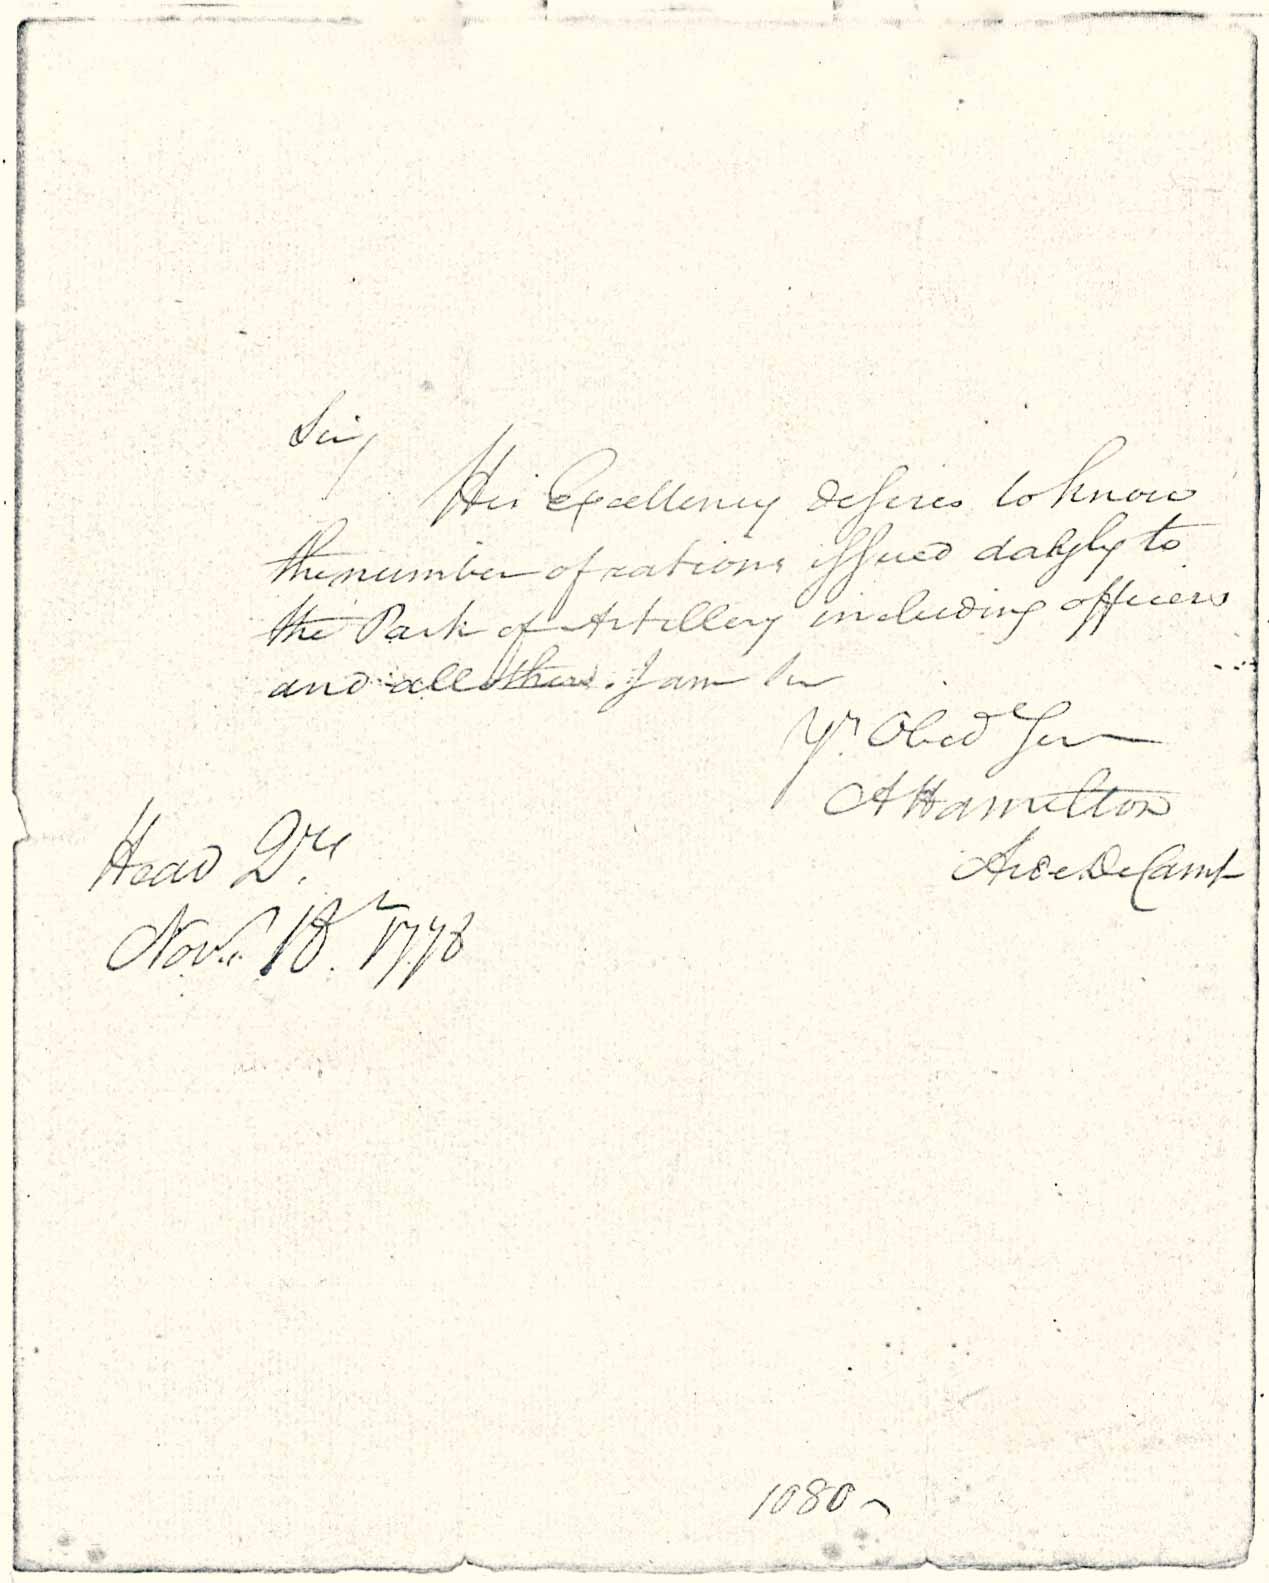 Sir,
His Excellency desires to know
the number of rations issued dayly to
the Park of Artillery including officers
and all others. I am Sir
Yr. Obed Ser
A Hamilton
Aide De Camp
Head Qrs
Novr. 18th. 1778
1080